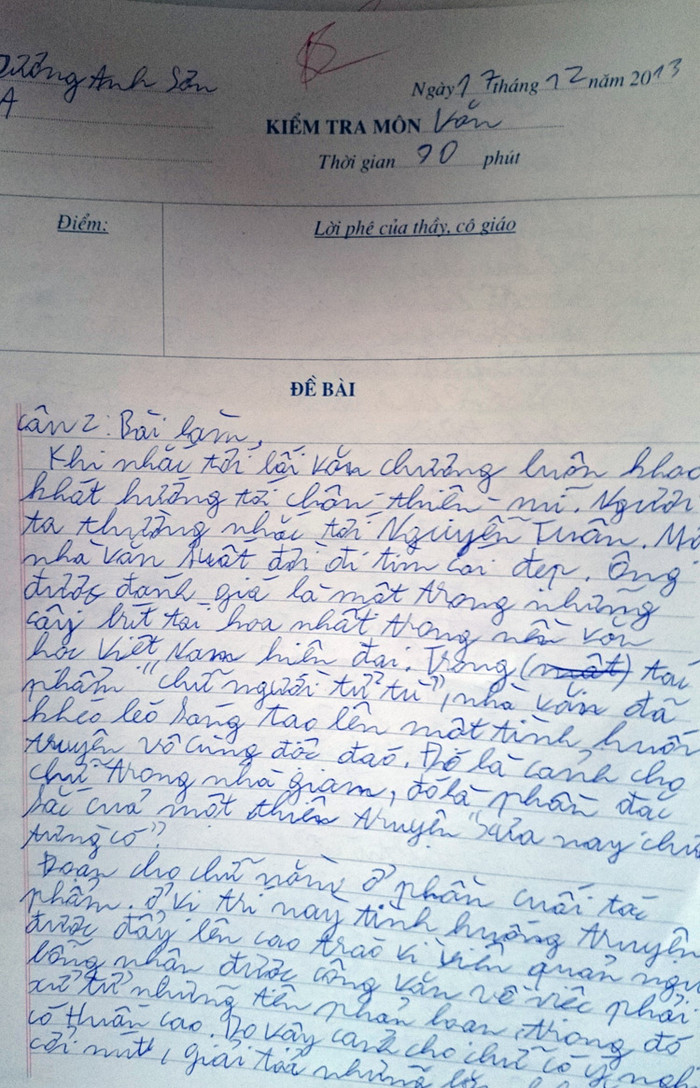 ường Anh Sơn
A
Ngày 17 tháng 12 năm 2013
KIỂM TRA MÔN Văn
Thời gian 90 phút
Điểm:
Lời phê của thầy, cô giáo
ĐỀ BÀI
Câu 2: Bài làm,
Khi nhắc tới lối văn chương luôn khao
khát hướng tới chân - thiên - mĩ. Người
ta thường nhắc tới Nguyễn Tuân. Mộ
nhà văn suất đời đi tìm cái đẹp. Ông
được đánh giá là một trong những
cây bút tài hoa nhất trong nền văn
học Việt Nam hiện đại. Trong (một) tác
phẩm "chữ người tử tù", nhà văn đã
khéo léo sáng tạo lên một tình huốn
truyện vô cùng độc đáo. Đó là cảnh cho
chữ trong nhà giam, đó là phần đặc
sắc của một thiên truyện "xưa nay chư
từng có".
Đoạn cho chữ nằm ở phần cuối tác
phẩm. Ở vị trí này tình huống truyện
được đẩy lên cao trào vì viên quản ngụ
bỗng nhận được công văn về việc phải
xử tử những tên phản loạn trong đó
có Huấn cao. Do vậy cảnh cho chữ có ý ngh
cởi nút, giải toả những